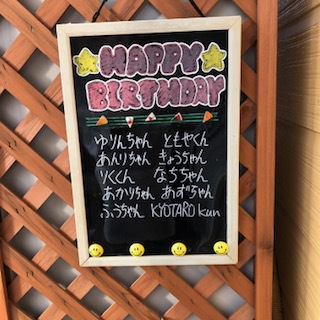 HAPPY
BIRTHDAY
ゆりんちゃん ともやくん
あんりちゃん きょうちゃん
りくくん なちちゃん
あかりちゃん あずちゃん
ふうちゃん KYOTARO kun